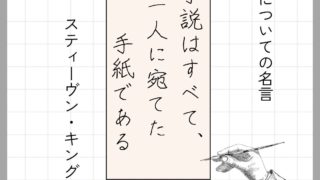 についての名言
説はすべて、
一人に宛てた
手紙である
スティーヴン・キング